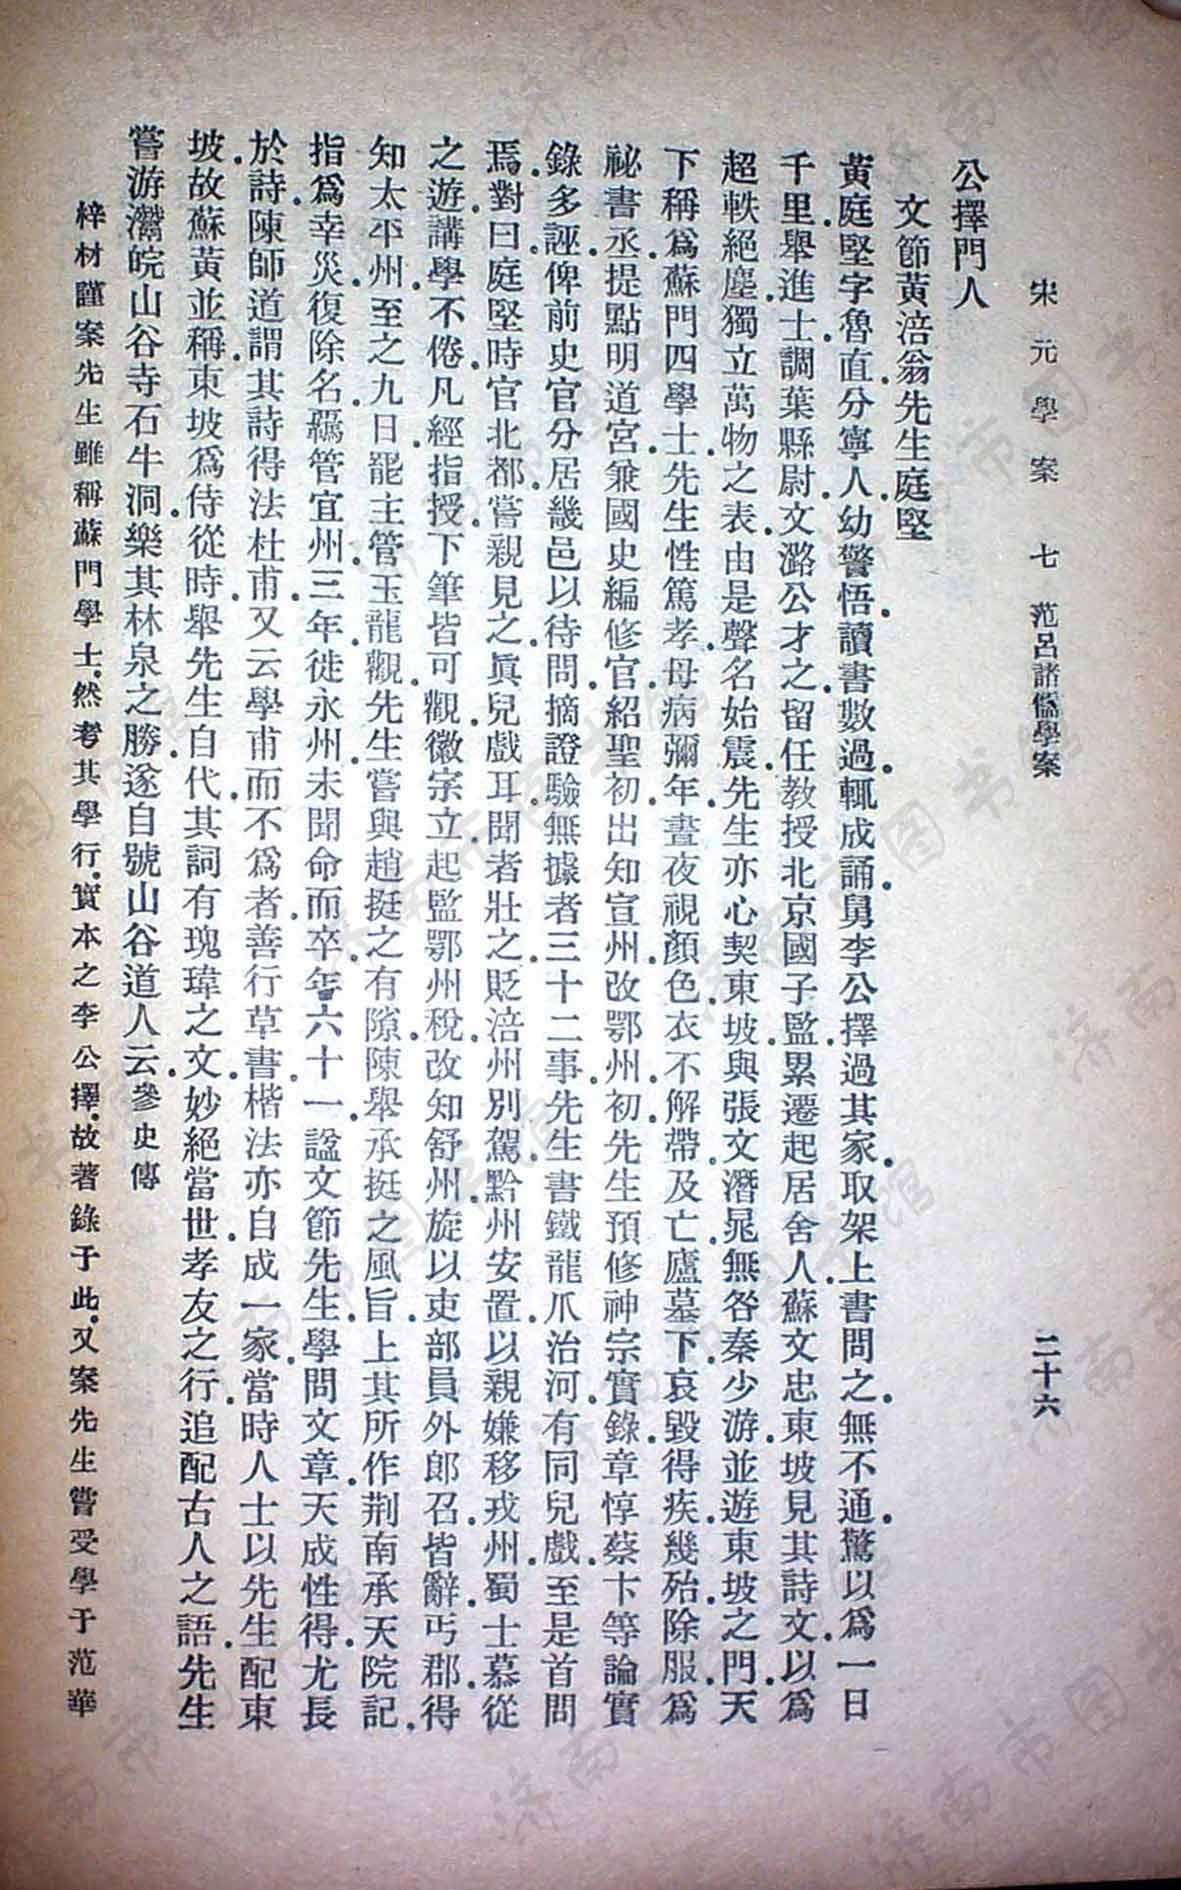 宋元學案 七 范呂諸儒學案 二十六
公擇門人
文節黃涪翁先生庭堅
黃庭堅字魯直分寧人幼警悟讀書數過輒成誦舅李公擇過其家取架上書問之無不通驚以爲一日
千里舉進士調葉縣尉文潞公才之留任教授北京國子監累遷起居舍人蘇文忠東坡見其詩文以爲
超軼絕塵獨立萬物之表由是聲名始震先生亦心契東坡與張文潛晁無咎秦少游並遊東坡之門天
下稱爲蘇門四學士先生性篤孝母病彌年晝夜視顏色衣不解帶及亡廬墓下哀毀得疾幾殆除服爲
祕書丞提點明道宮兼國史編修官紹聖初出知宣州改鄂州初先生預修神宗實錄章惇蔡卞等論實
錄多誣俾前史官分居畿邑以待問摘證驗無據者三十二事先生書鐵龍爪治河有同兒戲至是首問
焉對曰庭堅時官北都嘗親見之眞兒戲耳聞者壯之貶涪州別駕黔州安置以親嫌移戎州蜀士慕從
之遊講學不倦凡經指授下筆皆可觀徽宗立起監鄂州稅改知舒州旋以吏部員外郎召皆辭丐郡得
知太平州至之九日罷主管玉龍觀先生嘗與趙挺之有隙陳舉承挺之風旨上其所作荆南承天院記
指爲幸災復除名羈管宜州三年徙永州未聞命而卒年六十一諡文節先生學問文章天成性得尤長
於詩陳師道謂其詩得法杜甫又云學甫而不爲者善行草書楷法亦自成一家當時人士以先生配東
坡故蘇黃並稱東坡爲侍從時舉先生自代其詞有瑰瑋之文妙絕當世孝友之行追配古人之語先生
嘗游灊皖山谷寺石牛洞樂其林泉之勝遂自號山谷道人云參史傳
梓材謹案先生雖稱蘇門學士然考其學行實本之李公擇故著錄于此又案先生嘗受學于范華